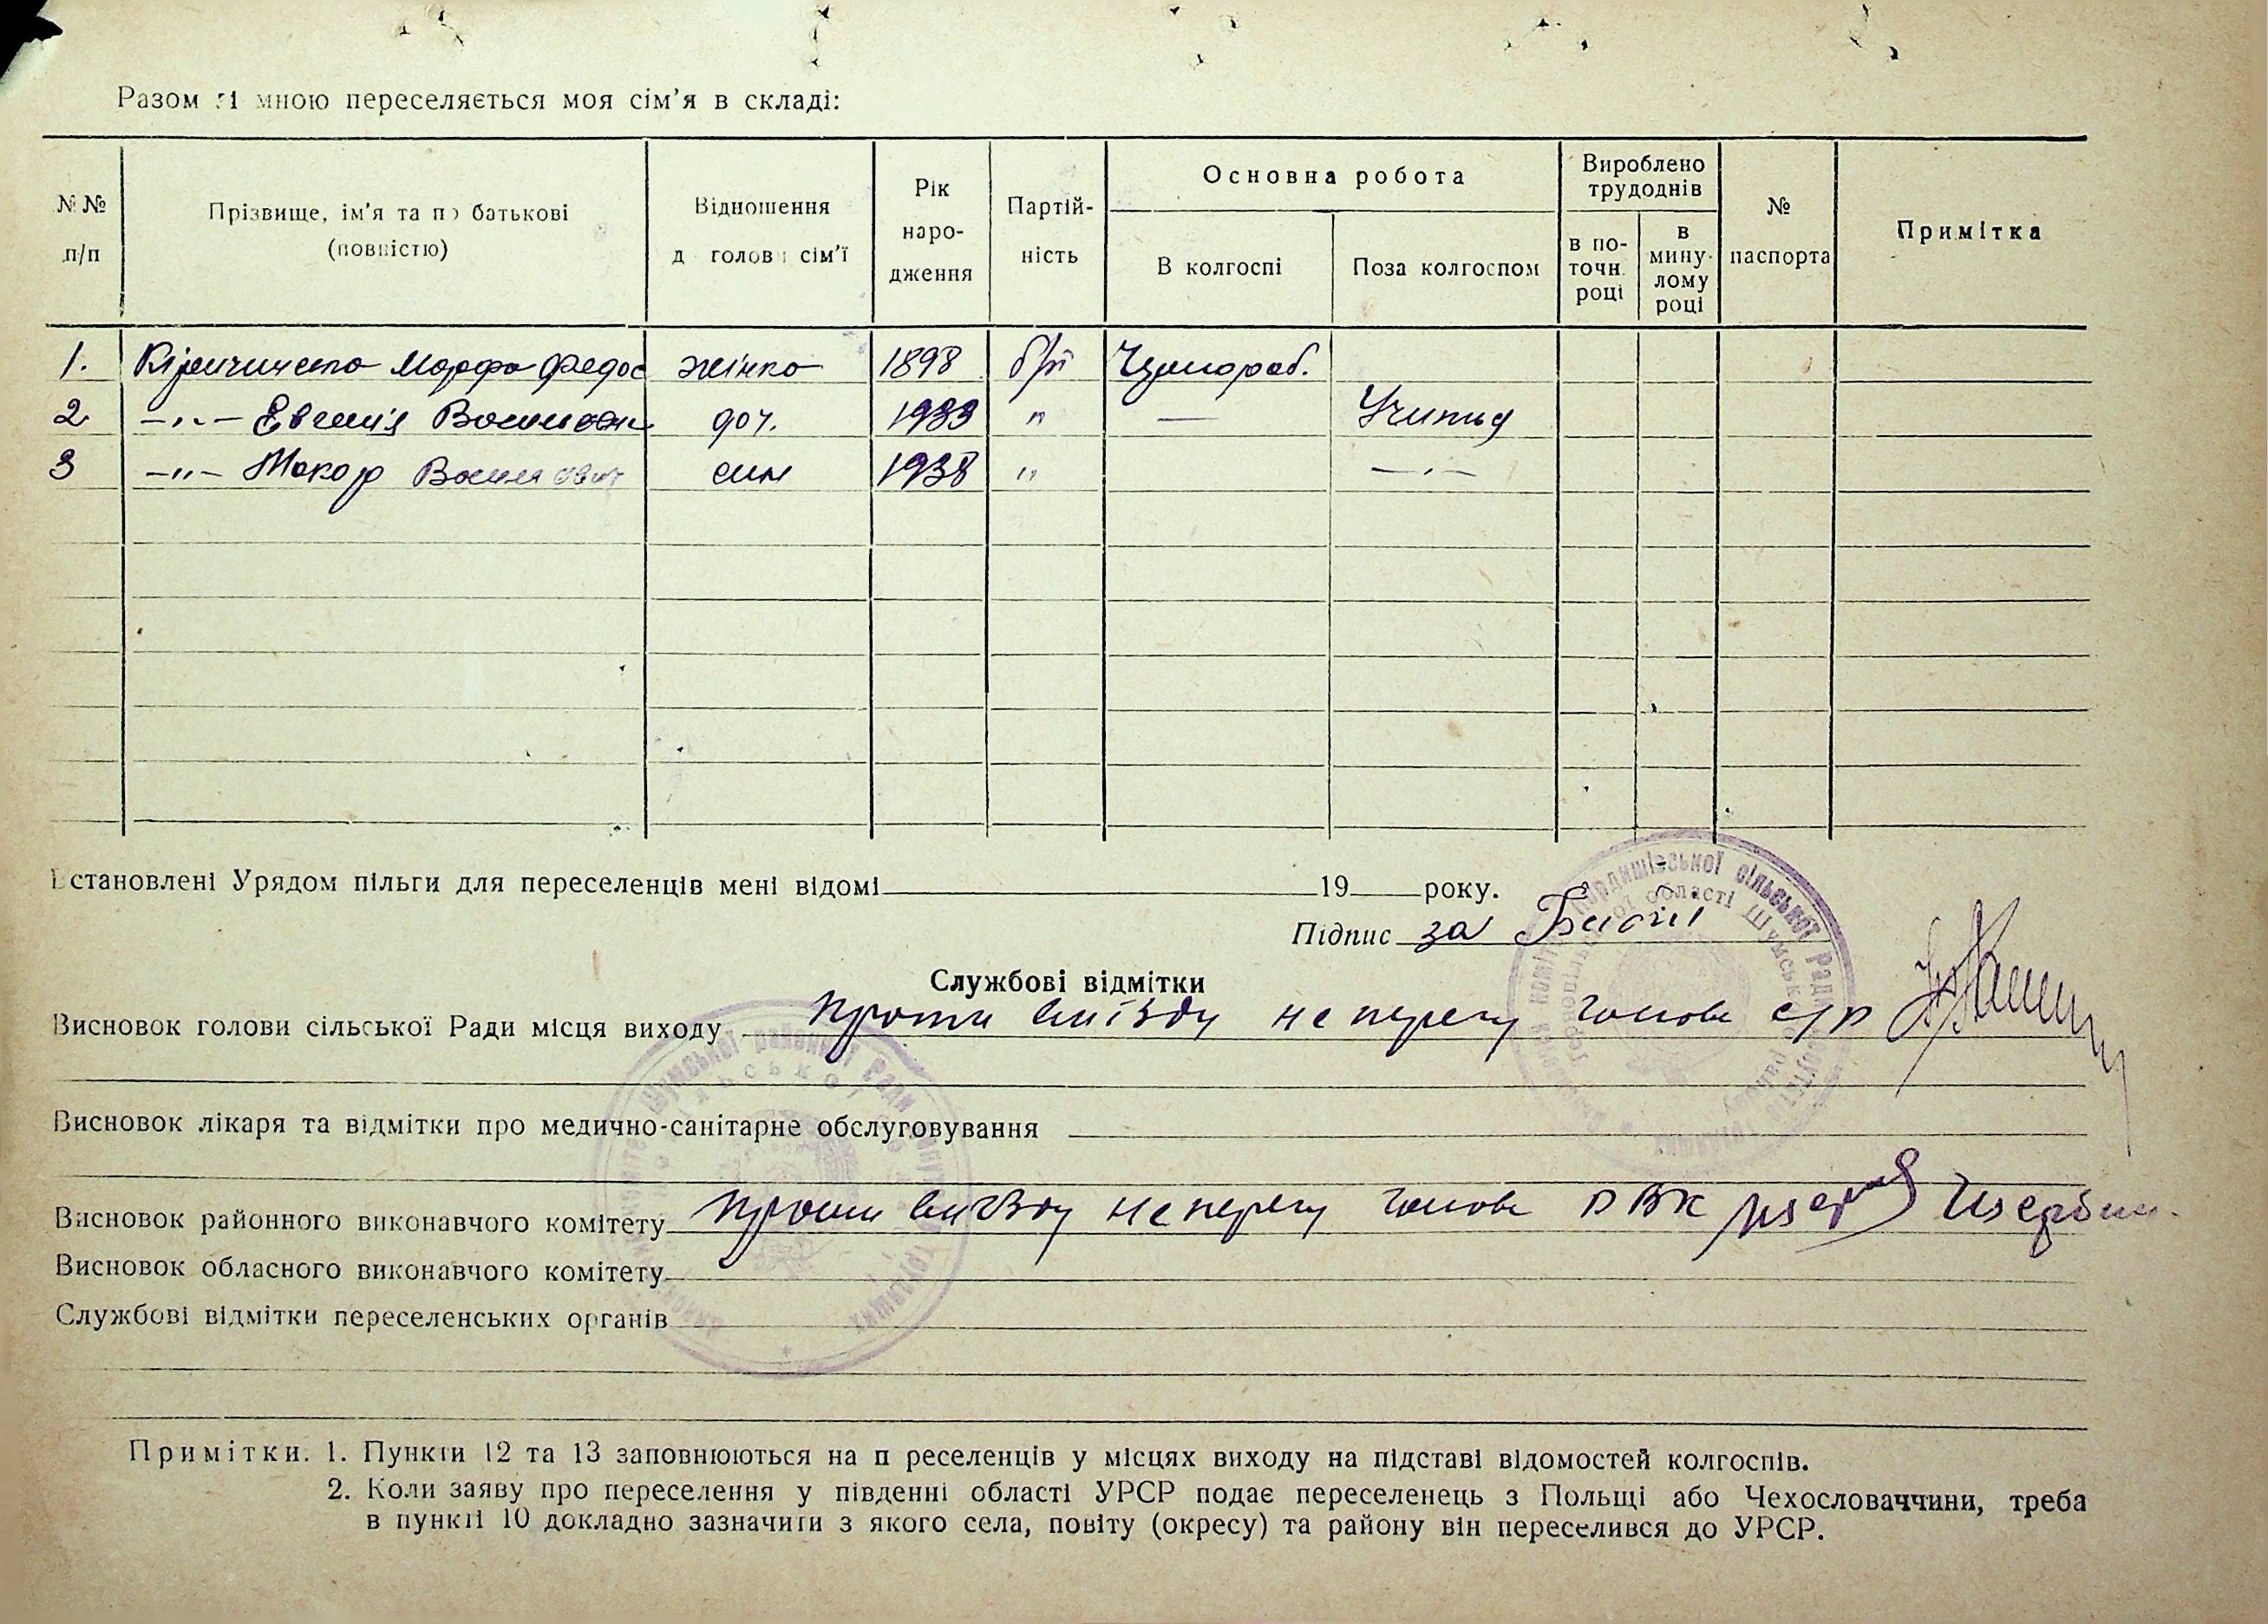 Разом зі мною переселяється моя сім'я в складі:
№№ п/п
Прізвище, ім'я та по батькові (повністю)
Відношення до голови сім'ї
Рік народження
Партійність
Основна робота
В колгоспі
Поза колгоспом
Вироблено трудоднів
в поточн. році
в минулому році
№ паспорта
Примітка
1. Марфа Федос жінка 1898 б/п
2 —"— Евгенія доч. 1933 " — Учиться
3 —"— Макар Васильович син 1938 " —"—
Встановлені Урядом пільги для переселенців мені відомі 19 року.
Підпис за
Службові відмітки
Висновок голови сільської Ради місця виходу проти виїзду не перечу голова с/р
Висновок лікаря та відмітки про медично-санітарне обслуговування
Висновок районного виконавчого комітету проти виїзду не перечу голова РВК
Висновок обласного виконавчого комітету
Службові відмітки переселенських органів
Примітки. 1. Пункти 12 та 13 заповнюються на переселенців у місцях виходу на підставі відомостей колгоспів.
2. Коли заяву про переселення у південні області УРСР подає переселенець з Польщі або Чехословаччини, треба
в пункті 10 докладно зазначити з якого села, повіту (окресу) та району він переселився до УРСР.